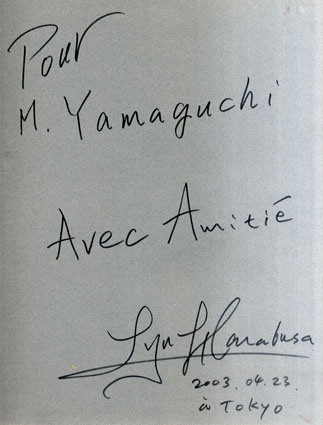 Pour
M. Yamaguchi
Avec Amitié
Lyu Hanabusa
2003. 04. 23.
à TOKYO